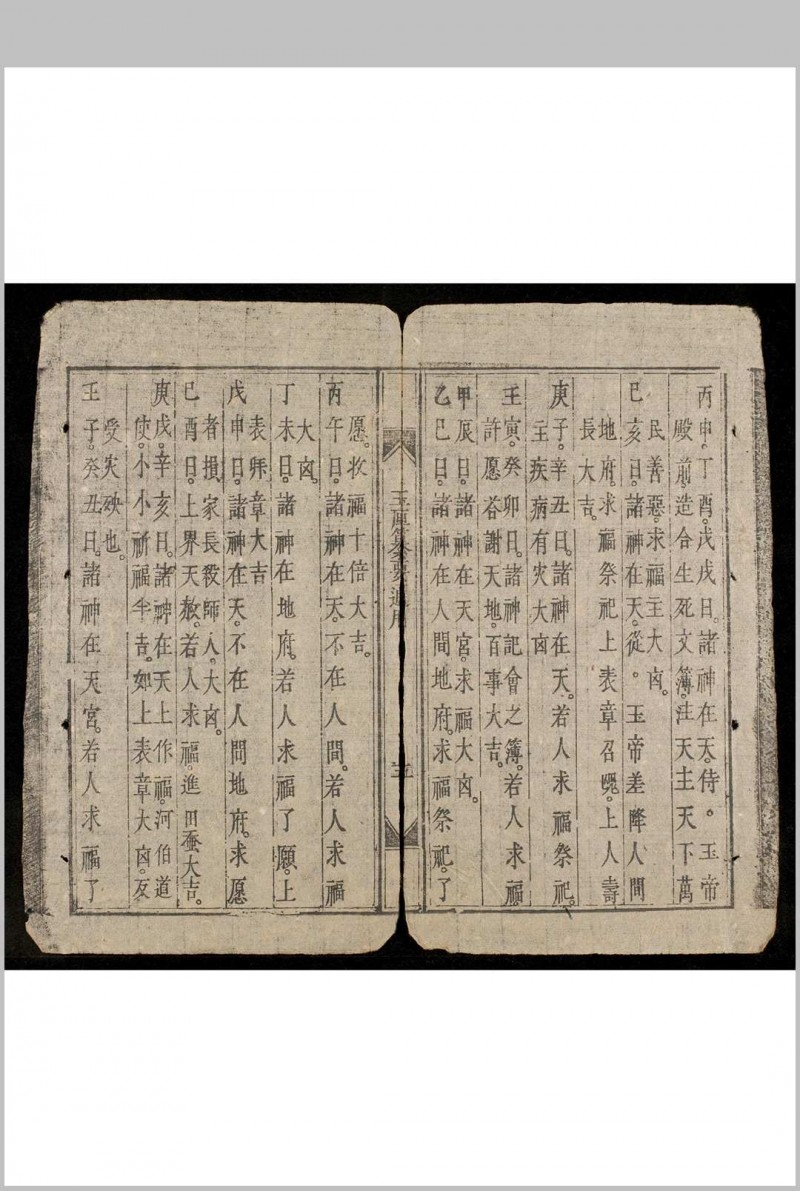 丙申。丁酉。戊戌日。諸神在天。侍。玉帝
殿前造合生死文簿。注天主天下萬
民善惡。求福主大凶。
巳亥日。諸神在天。從。玉帝差降人間
地府。求福祭祀上表章召魂。上人壽
長大吉。
庚子。辛丑日。諸神在天。若人求福祭祀。
主疾病有灾大凶
壬寅。癸卯日。諸神記會之簿。若人求福。
許愿谷謝天地。百事大吉。
甲辰日。諸神在天宮。求福大凶。
乙巳日。諸神在人間地府。求福祭祀。了
愿。收福十倍大吉。
丙午日。諸神在天。不在人間。若人求福
大凶。
丁未日。諸神在地府。若人求福了願。上
表拜章大吉
戊申日。諸神在天。不在人間地府。求愿
者損家長殺師人。大凶。
巳酉日。上界天赦。若人求福。進田蚕大吉。
庚戌。辛亥日。諸神在天上作福。河伯道
使。小小祈福半吉。如上表章大凶。反
受灾殃也。
壬子。癸丑日。諸神在天宮。若人求福了